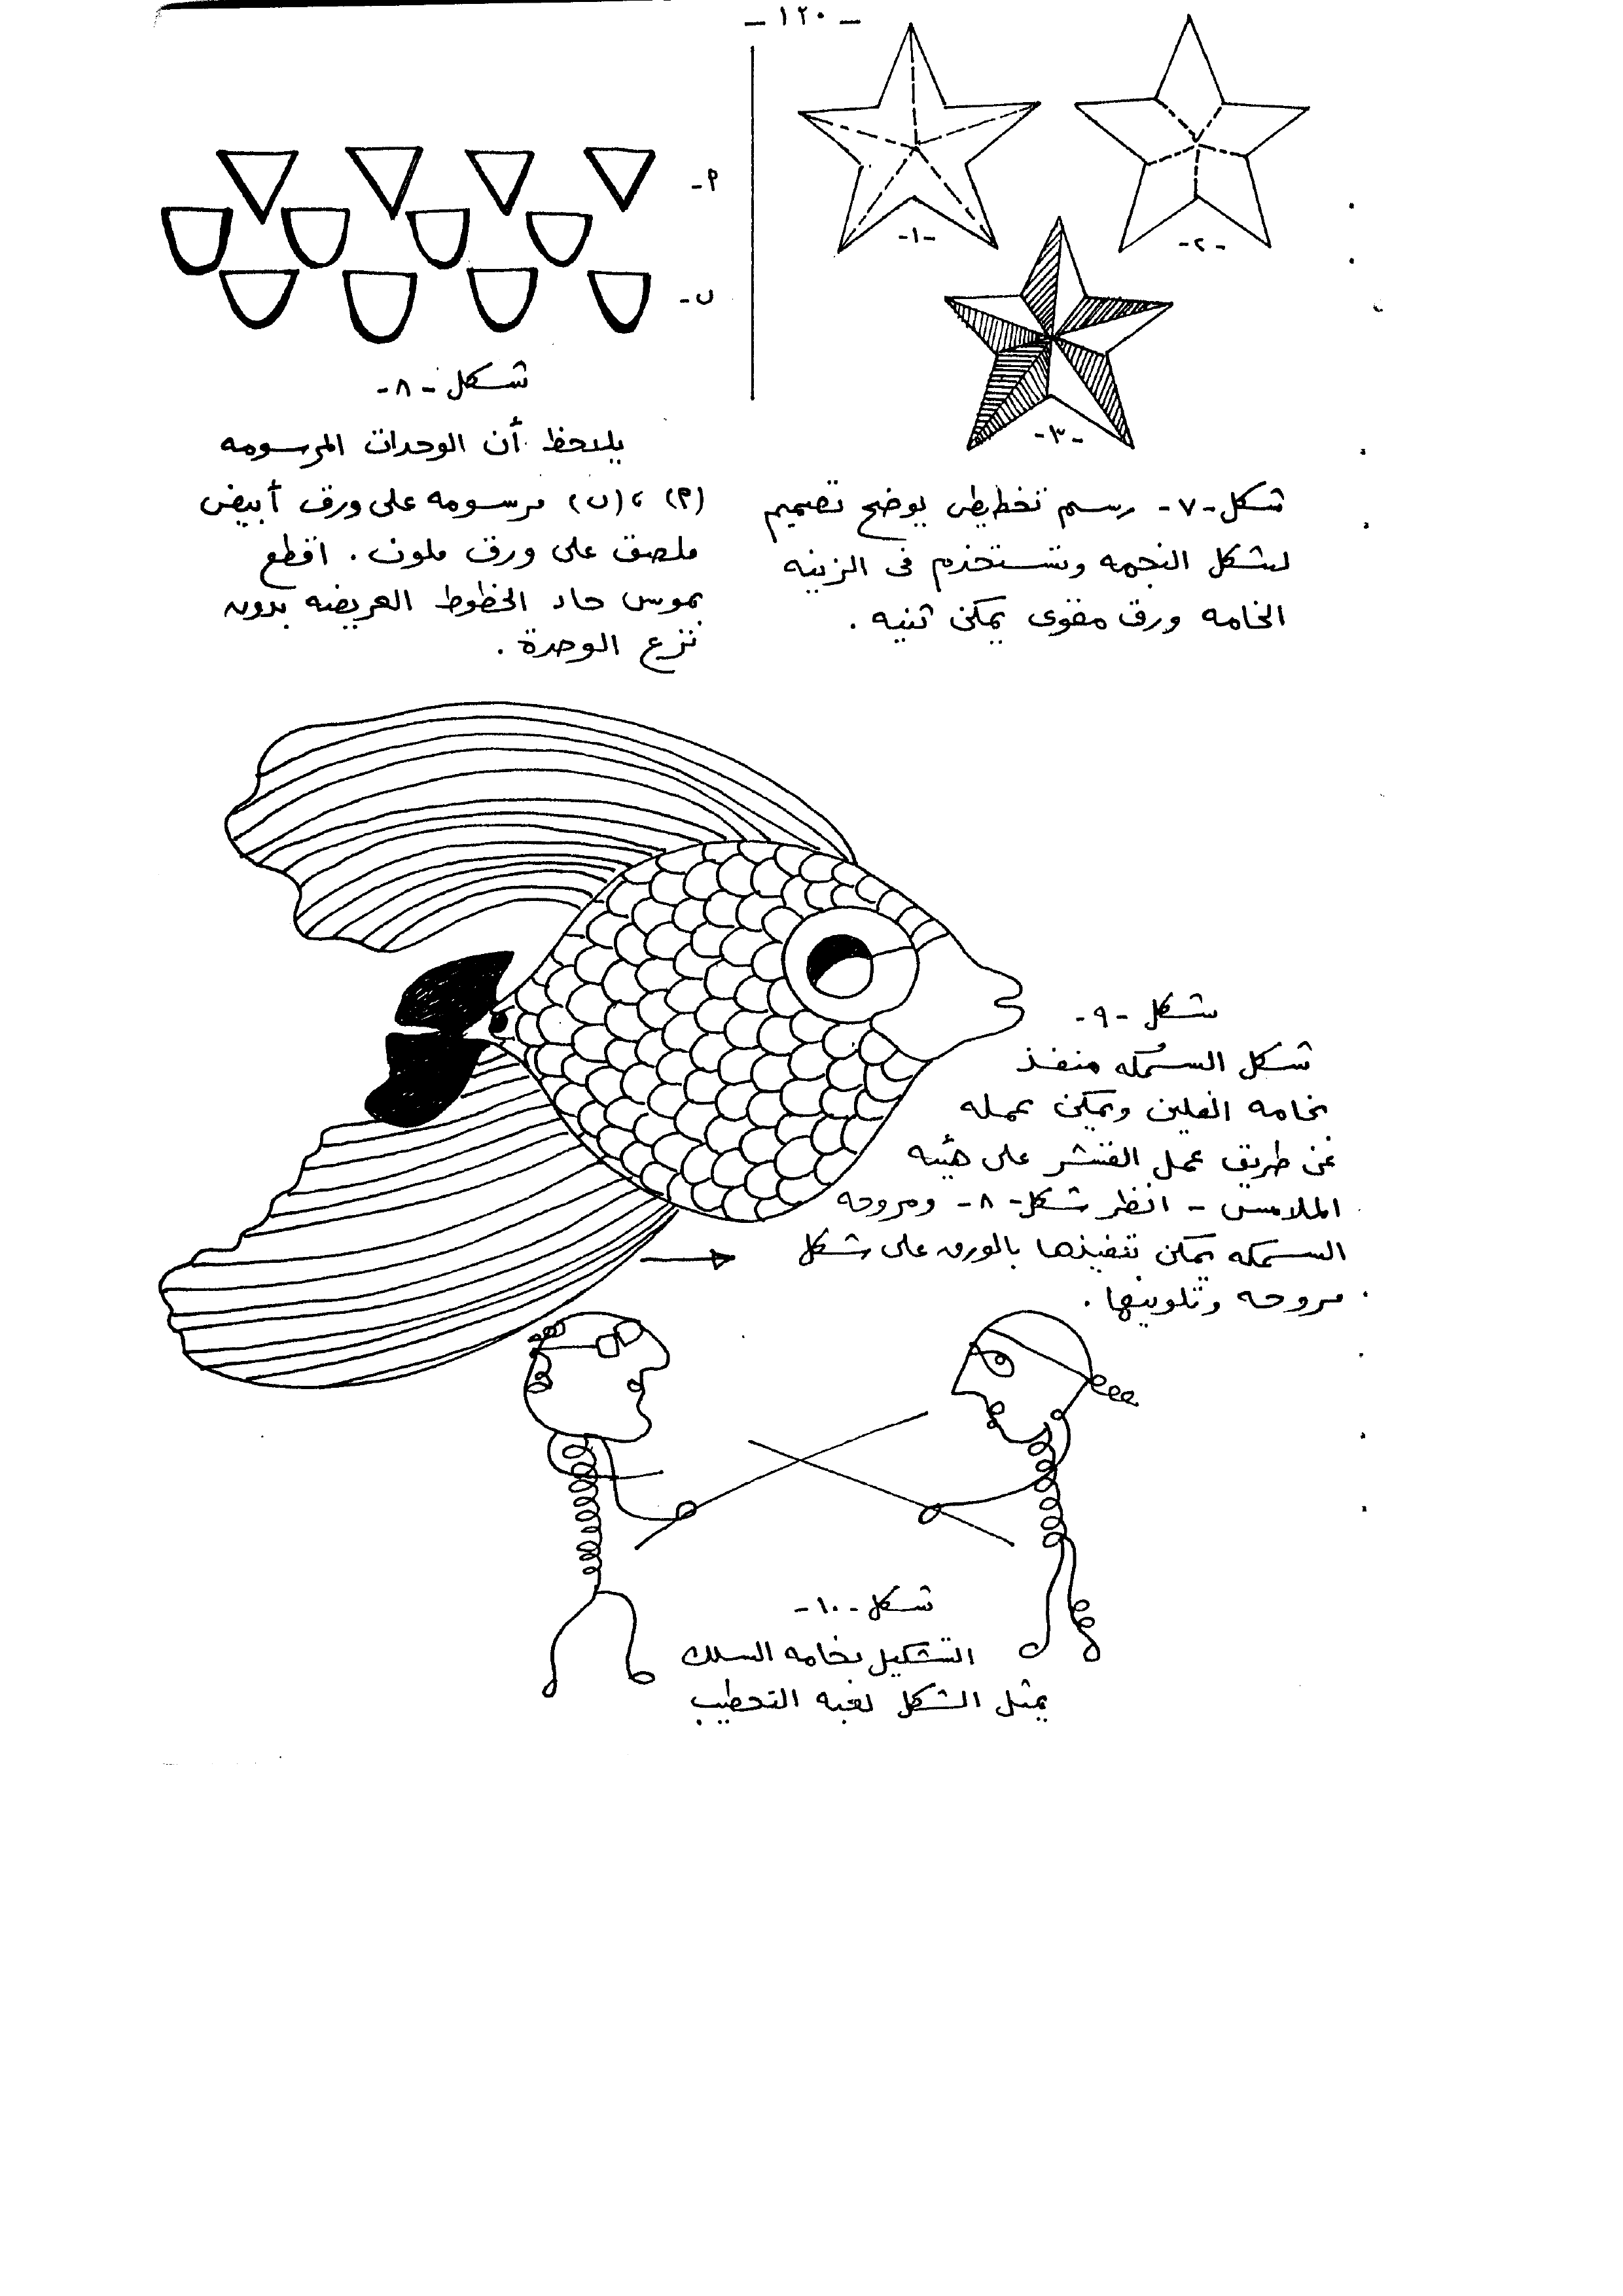 - ١٢٠ -
-١-
-٢-
-٣-
شكل -٧- رسم تخطيطى يوضح تصميم
لشكل النجمه وتستخدم فى الزينه
الخامه ورق مقوى يمكن ثنيه .
م -
ں -
شكل - ٨ -
يلاحظ أن الوحدات المرسومه
(م) ، (ں) مرسومه على ورق أبيض
ملصق على ورق ملون . اقطع
بموس حاد الخطوط العريضه بدون
نزع الوحدة .
شكل - ٩ -
شكل السمكه منفذ
بخامه الفلين ويمكن عمله
عن طريق عمل القشر على هيئه
الملامس - انظر شكل - ٨ - ومروحه
السمكه يمكن تنفيذها بالورق على شكل
مروحه وتلوينها .
شكل - ١٠ -
التشكيل بخامه السلك
يمثل الشكل لعبه التحطيب